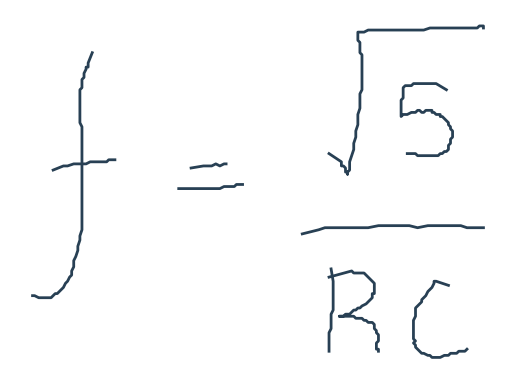 f = √5 / RC